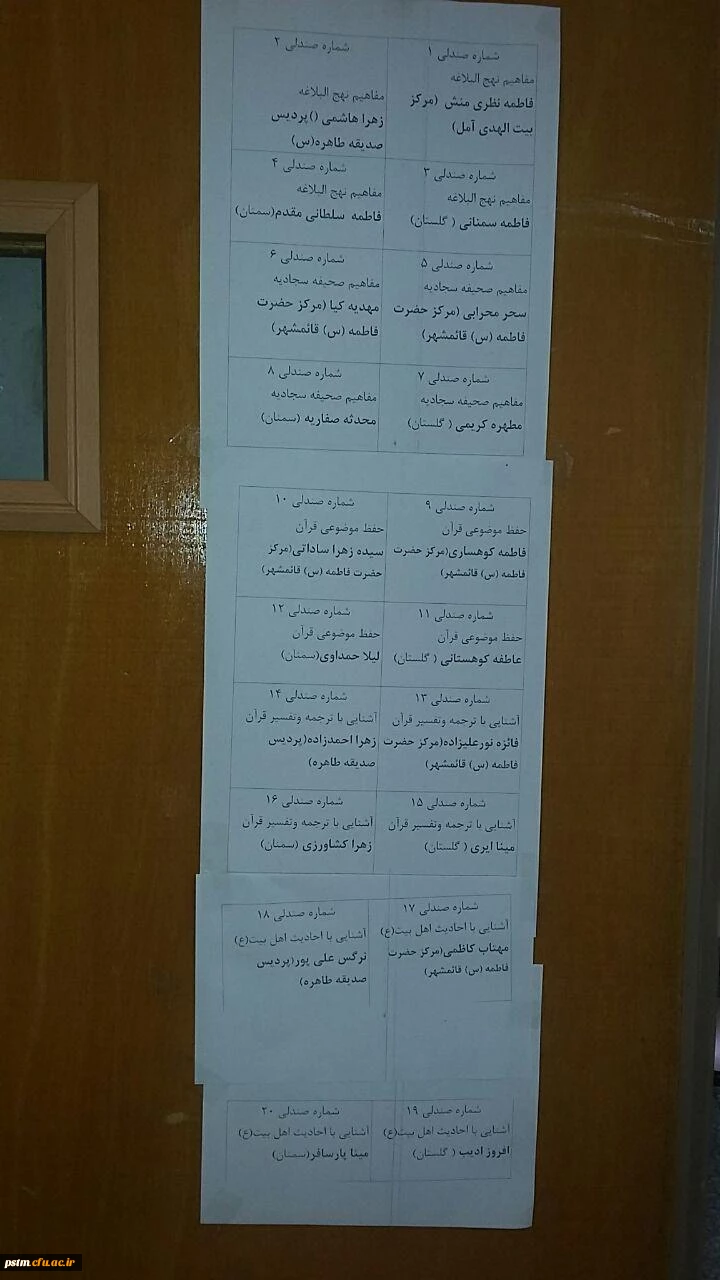 شماره صندلی ۱
مفاهیم نهج البلاغه
فاطمه نظری منش (مرکز
بیت الهدی آمل)
شماره صندلی ۲
مفاهیم نهج البلاغه
زهرا هاشمی ()پردیس
صدیقه طاهره(س)
شماره صندلی ۳
مفاهیم نهج البلاغه
فاطمه سمنانی ( گلستان)
شماره صندلی ۴
مفاهیم نهج البلاغه
فاطمه سلطانی مقدم(سمنان)
شماره صندلی ۵
مفاهیم صحیفه سجادیه
سحر محرابی (مرکز حضرت
فاطمه (س) قائمشهر)
شماره صندلی ۶
مفاهیم صحیفه سجادیه
مهدیه کیا (مرکز حضرت
فاطمه (س) قائمشهر)
شماره صندلی ۷
مفاهیم صحیفه سجادیه
مطهره کریمی ( گلستان)
شماره صندلی ۸
مفاهیم صحیفه سجادیه
محدثه صفاریه (سمنان)
شماره صندلی ۹
حفظ موضوعی قرآن
فاطمه کوهساری(مرکز حضرت
فاطمه (س) قائمشهر)
شماره صندلی ۱۰
حفظ موضوعی قرآن
سیده زهرا ساداتی(مرکز
حضرت فاطمه (س) قائمشهر)
شماره صندلی ۱۱
حفظ موضوعی قرآن
عاطفه کوهستانی ( گلستان)
شماره صندلی ۱۲
حفظ موضوعی قرآن
لیلا حمداوی(سمنان)
شماره صندلی ۱۳
آشنایی با ترجمه وتفسیر قرآن
فائزه نورعلیزاده(مرکز حضرت
فاطمه (س) قائمشهر)
شماره صندلی ۱۴
آشنایی با ترجمه وتفسیر قرآن
زهرا احمدزاده(پردیس
صدیقه طاهره)
شماره صندلی ۱۵
آشنایی با ترجمه وتفسیر قرآن
مینا ایری ( گلستان)
شماره صندلی ۱۶
آشنایی با ترجمه وتفسیر قرآن
زهرا کشاورزی (سمنان)
شماره صندلی ۱۷
آشنایی با احادیث اهل بیت(ع)
مهتاب کاظمی(مرکز حضرت
فاطمه (س) قائمشهر)
شماره صندلی ۱۸
آشنایی با احادیث اهل بیت(ع)
نرگس علی پور(پردیس
صدیقه طاهره)
شماره صندلی ۱۹
آشنایی با احادیث اهل بیت(ع)
افروز ادیب ( گلستان)
شماره صندلی ۲۰
آشنایی با احادیث اهل بیت(ع)
مینا پارسافر(سمنان)
pstm.cfu.ac.ir